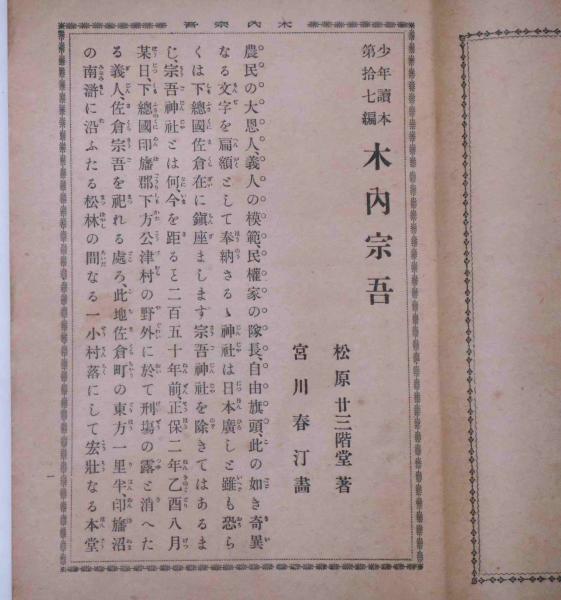 木内宗吾
少年讀本
第拾七編
木内宗吾
松原廿三階堂著
宮川春汀畵
農民の大恩人、義人の模範、民權家の隊長、自由旗頭、此の如き奇異
なる文字を扁額として奉納さるゝ神社は日本廣しと雖も恐ら
くは下總國佐倉在に鎭座まします宗吾神社を除きてはあるま
じ、宗吾神社とは何、今を距ると二百五十年前、正保二年乙酉八月
某日、下總國印旛郡下方公津村の野外に於て刑塲の露と消へた
る義人佐倉宗吾を祀れる處ろ、此地佐倉町の東方一里半、印旛沼
の南滸に沿ふたる松林の間なる一小村落にして宏壯なる本堂
一